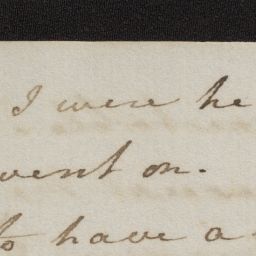 I were he
went on.
to have a